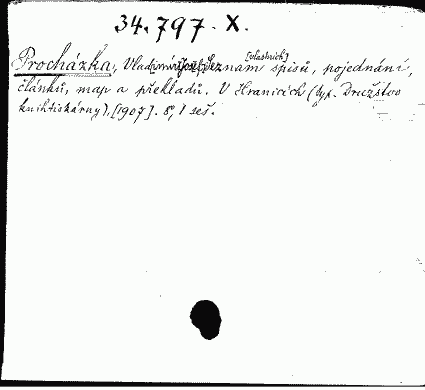 34.797. X.
Procházka, Vladimír Josef, Seznam [vlastních] spisů, pojednání,
článků, map a překladů. V Hranicích (typ. Družstvo
knihtiskárny), [1907]. 8°, 1 seš.